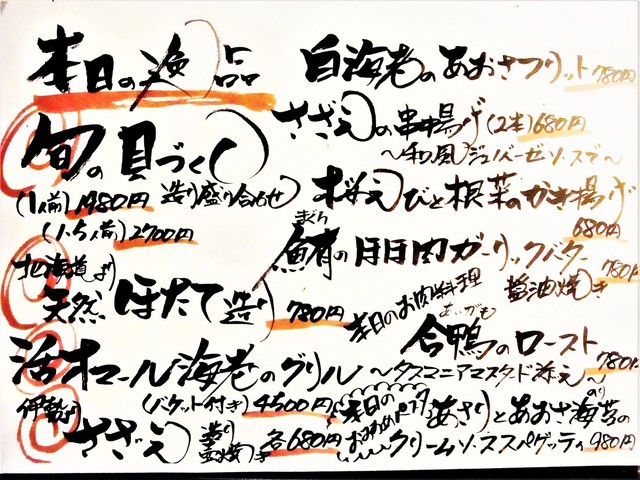 本日の逸品
旬の貝づくし
(1人前)1980円 造り盛り合わせ
(1.5人前)2700円
北海道より
天然ほたて造り 780円
活オマール海老のグリル
(バケット付き)4500円
さざえ 造り 壺焼き 各680円
白海老のあおさフリット 780円
さざえの串揚げ(2本)680円
〜和風ジェノバーゼソースで〜
桜えびと根菜のかき揚げ
680円
まぐろ
鮪のほほ肉ガーリックバター
醤油焼き 780円
本日のお肉料理
あいがも
合鴨のロースト
780円
〜タスマニアマスタード添え〜
本日のおすすめパスタ
あさりとあおさ海苔の
のり
クリームソーススパゲッティ 980円